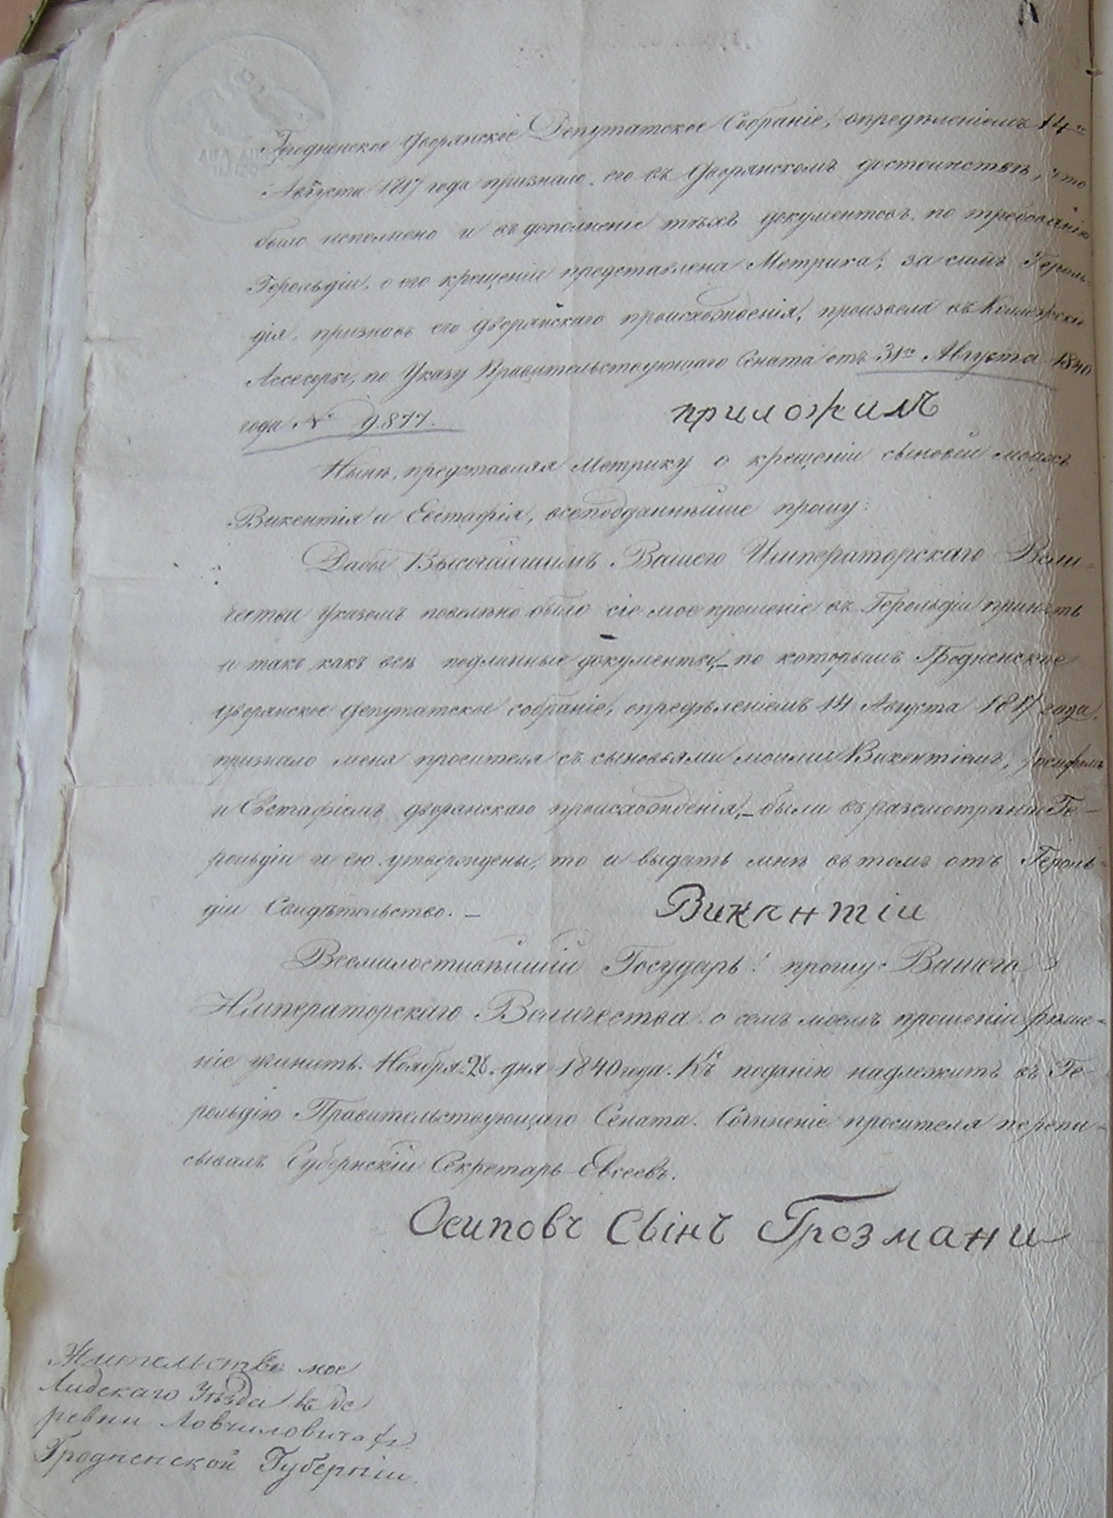 Гродненское Дворянское Депутатское Собраніе, опредѣленіемъ 14го
Августа 1817 года признало его въ Дворянскомъ достоинствѣ, что
было исполнено и въ дополненіе тѣхъ документовъ по требованію
Герольдіи, о его крещеніи представлена Метрика; за симъ Героль-
дія, признавъ его дворянскаго происхожденія, произвела въ Коллежскіе
Ассесоры, по Указу Правительствующаго Сената отъ 31го Августа 1840
года № 9877.
приложилъ
Нынѣ, представляя Метрику о крещеніи сыновей моихъ
Викентія и Евстафія, всеподданнѣйше прошу:
Дабы Высочайшимъ Вашего Императорскаго Вели-
чества Указомъ повелѣно было сіе мое прошеніе въ Герольдіи принять
и такъ какъ всѣ подлинные документы, – по которымъ Гродненское
дворянское депутатское собраніе, опредѣленіемъ 14 Августа 1817 года,
признало меня просителя съ сыновьями моими Викентіемъ, Іосифомъ
и Евстафіемъ дворянскаго происхожденія, – были въ разсмотрѣніи Ге-
рольдіи и ею утверждены, то и выдать мнѣ въ томъ отъ Героль-
діи Свидѣтельство. –
Викентіи
Всемилостивѣйшій Государь! прошу Вашего
Императорскаго Величества о семъ моемъ прошеніи рѣше-
ніе учинить. Ноября 28. дня 1840 года. Къ поданію надлежитъ въ Ге-
рольдію Правительствующаго Сената. Сочиненіе просителя перепи-
сывалъ Губернскій Секретарь Евсеевъ.
Осиповъ Сынъ Грозмани
Жительство мое
Лидскаго Уѣзда въ де
ревни
Гродненской Губерніи.